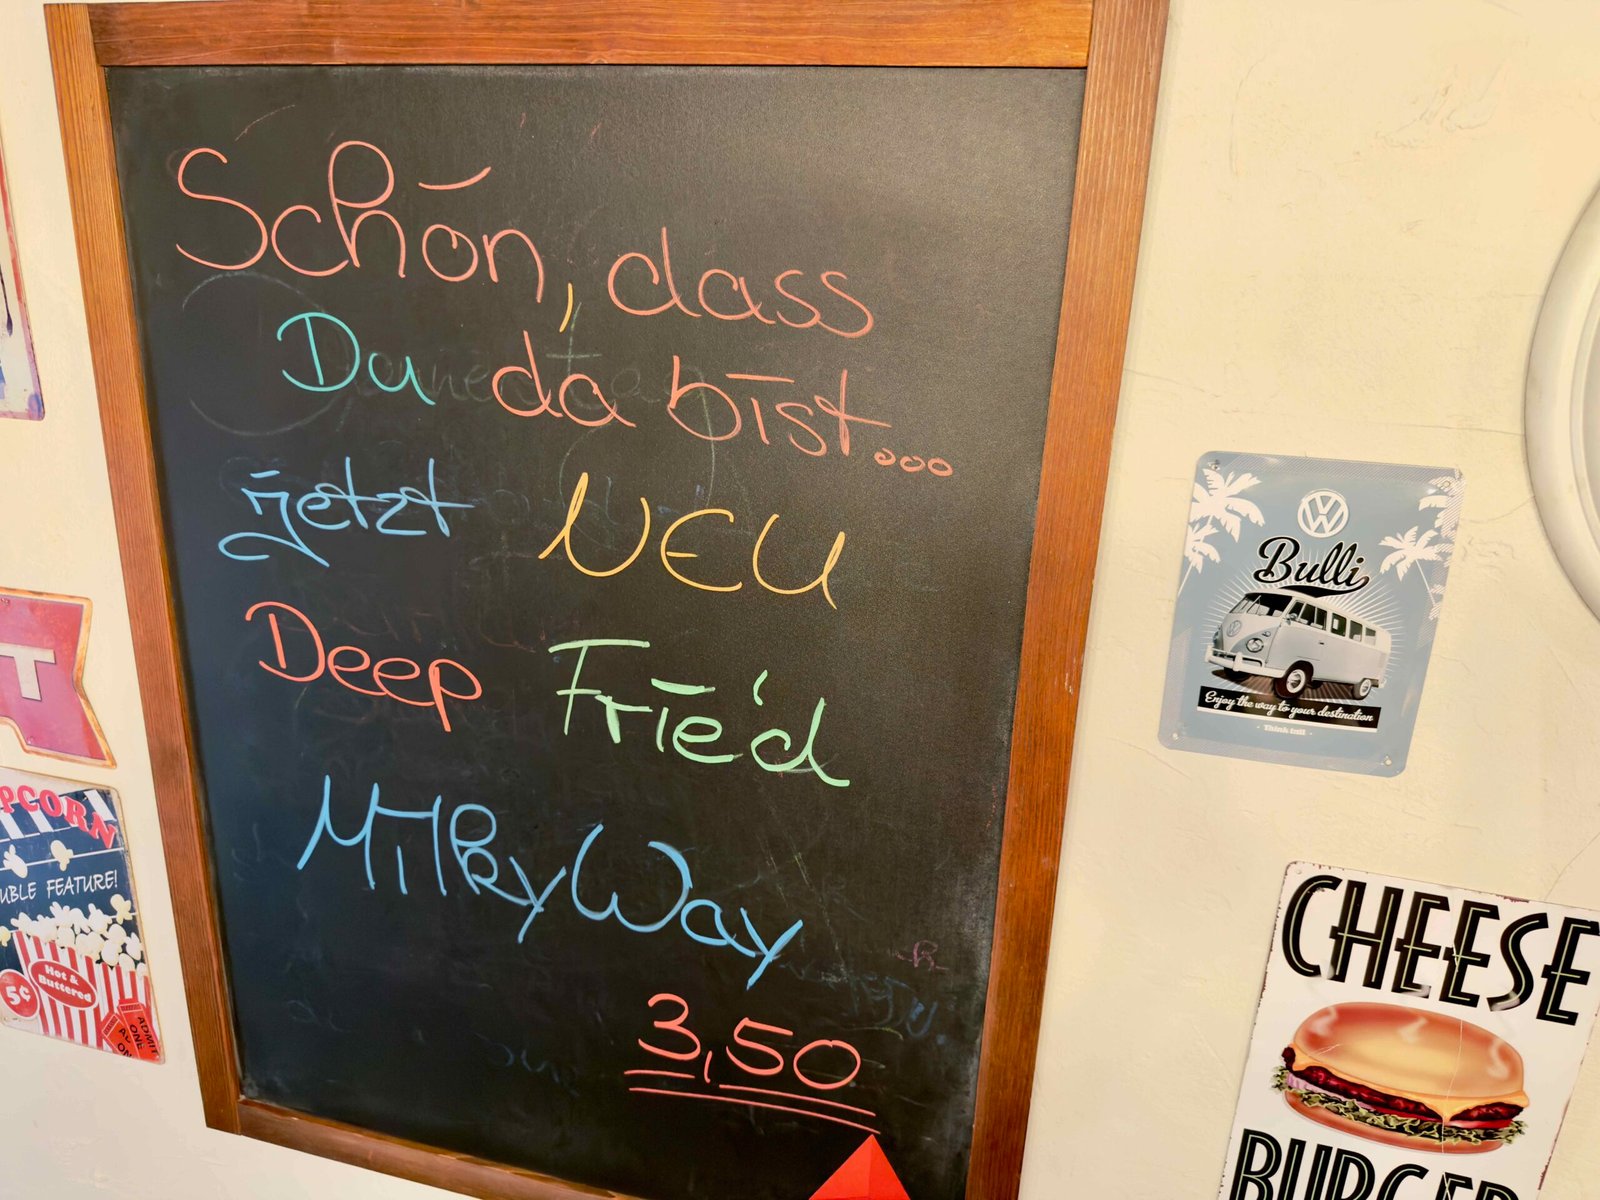 Schön, dass
Du da bist...
jetzt NEU
Deep Frie'd
MilkyWay
3,50
T
PCORN
UBLE FEATURE!
Hot &
Buttered
5¢
ADMIT
ONE
VW
Bulli
Enjoy the way to your destination
CHEESE
BURGER